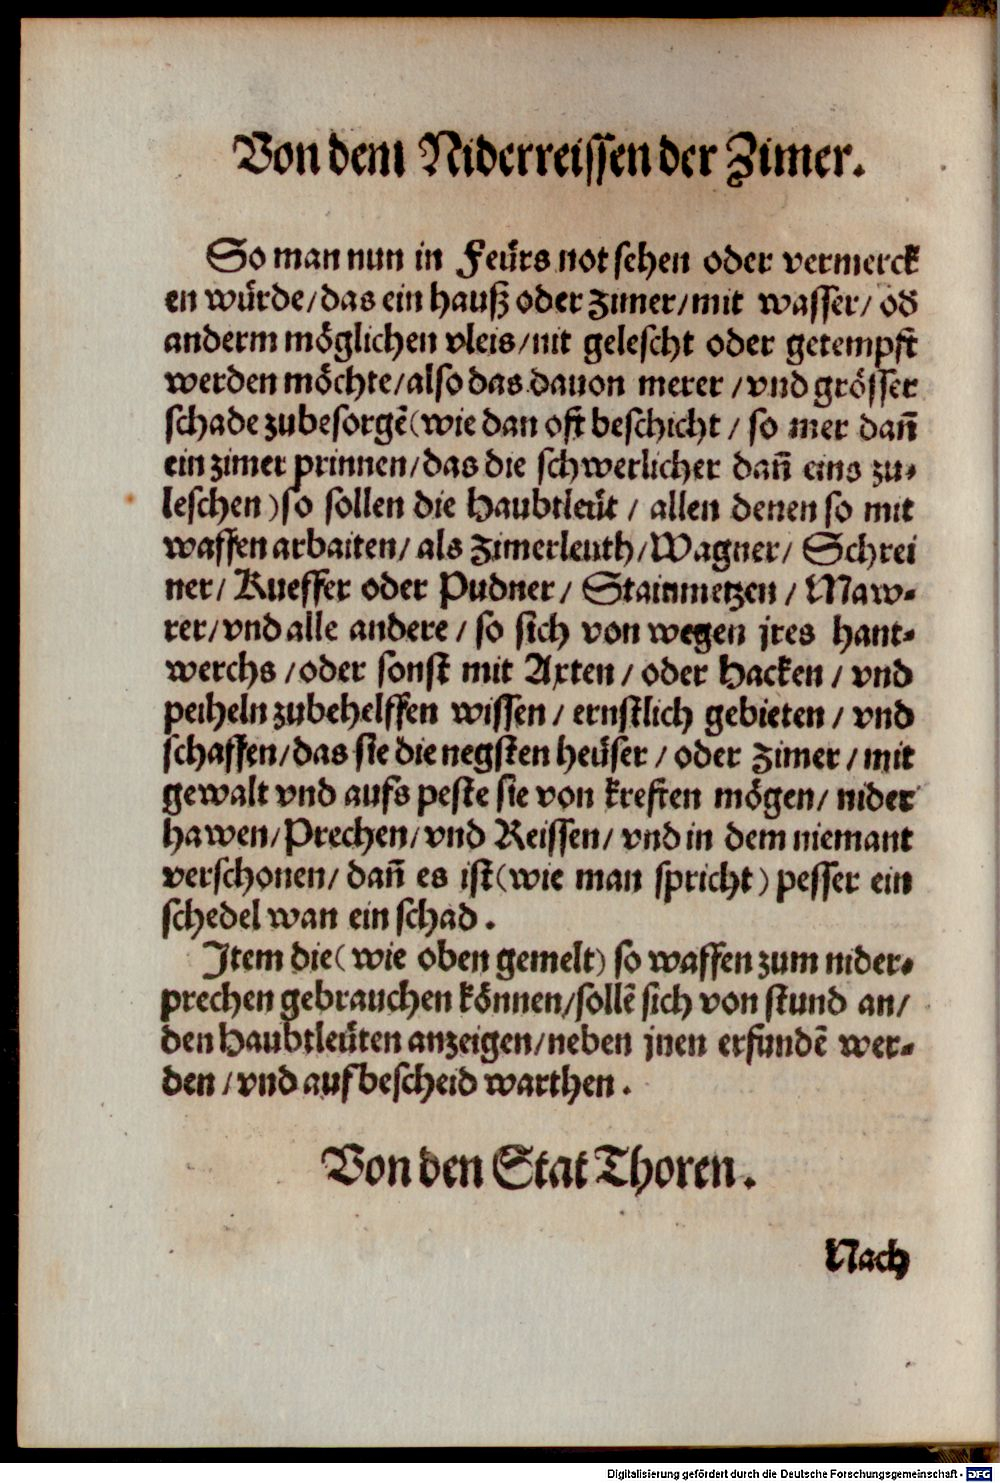 Von dem Niderreissen der Zimer.
So man nun in Feürs not sehen oder vermerck
en würde/das ein hauß oder Zimer/mit wasser/ od
anderm möglichen vleis/nit gelescht oder getempft
werden möchte/also das dauon merer /vnd grösser
schade zubesorgẽ(wie dan oft beschicht / so mer dañ
ein zimer prinnen/das die schwerlicher dañ eins zu-
leschen)so sollen die Haubtleüt / allen denen so mit
waffen arbaiten/ als Zimerleuth/Wagner/ Schrei
ner/ Kueffer oder Pudner/ Stainmetzen / Maw-
rer/vnd alle andere / so sich von wegen jres hant-
werchs /oder sonst mit Axten/ oder Hacken / vnd
peiheln zubehelffen wissen/ ernstlich gebieten / vnd
schaffen/das sie die negsten heüser / oder Zimer / mit
gewalt vnd aufs peste sie von kreften mögen/ nider
hawen/Prechen/vnd Reissen/ vnd in dem niemant
verschonen/ dañ es ist(wie man spricht) pesser ein
schedel wan ein schad.
Item die( wie oben gemelt) so waffen zum nider-
prechen gebrauchen können/sollẽ sich von stund an/
den Haubtleüten anzeigen/neben jnen erfundẽ wer-
den / vnd auf bescheid warthen.
Von den Stat Thoren.
Nach
Digitalisierung gefördert durch die Deutsche Forschungsgemeinschaft - DFG